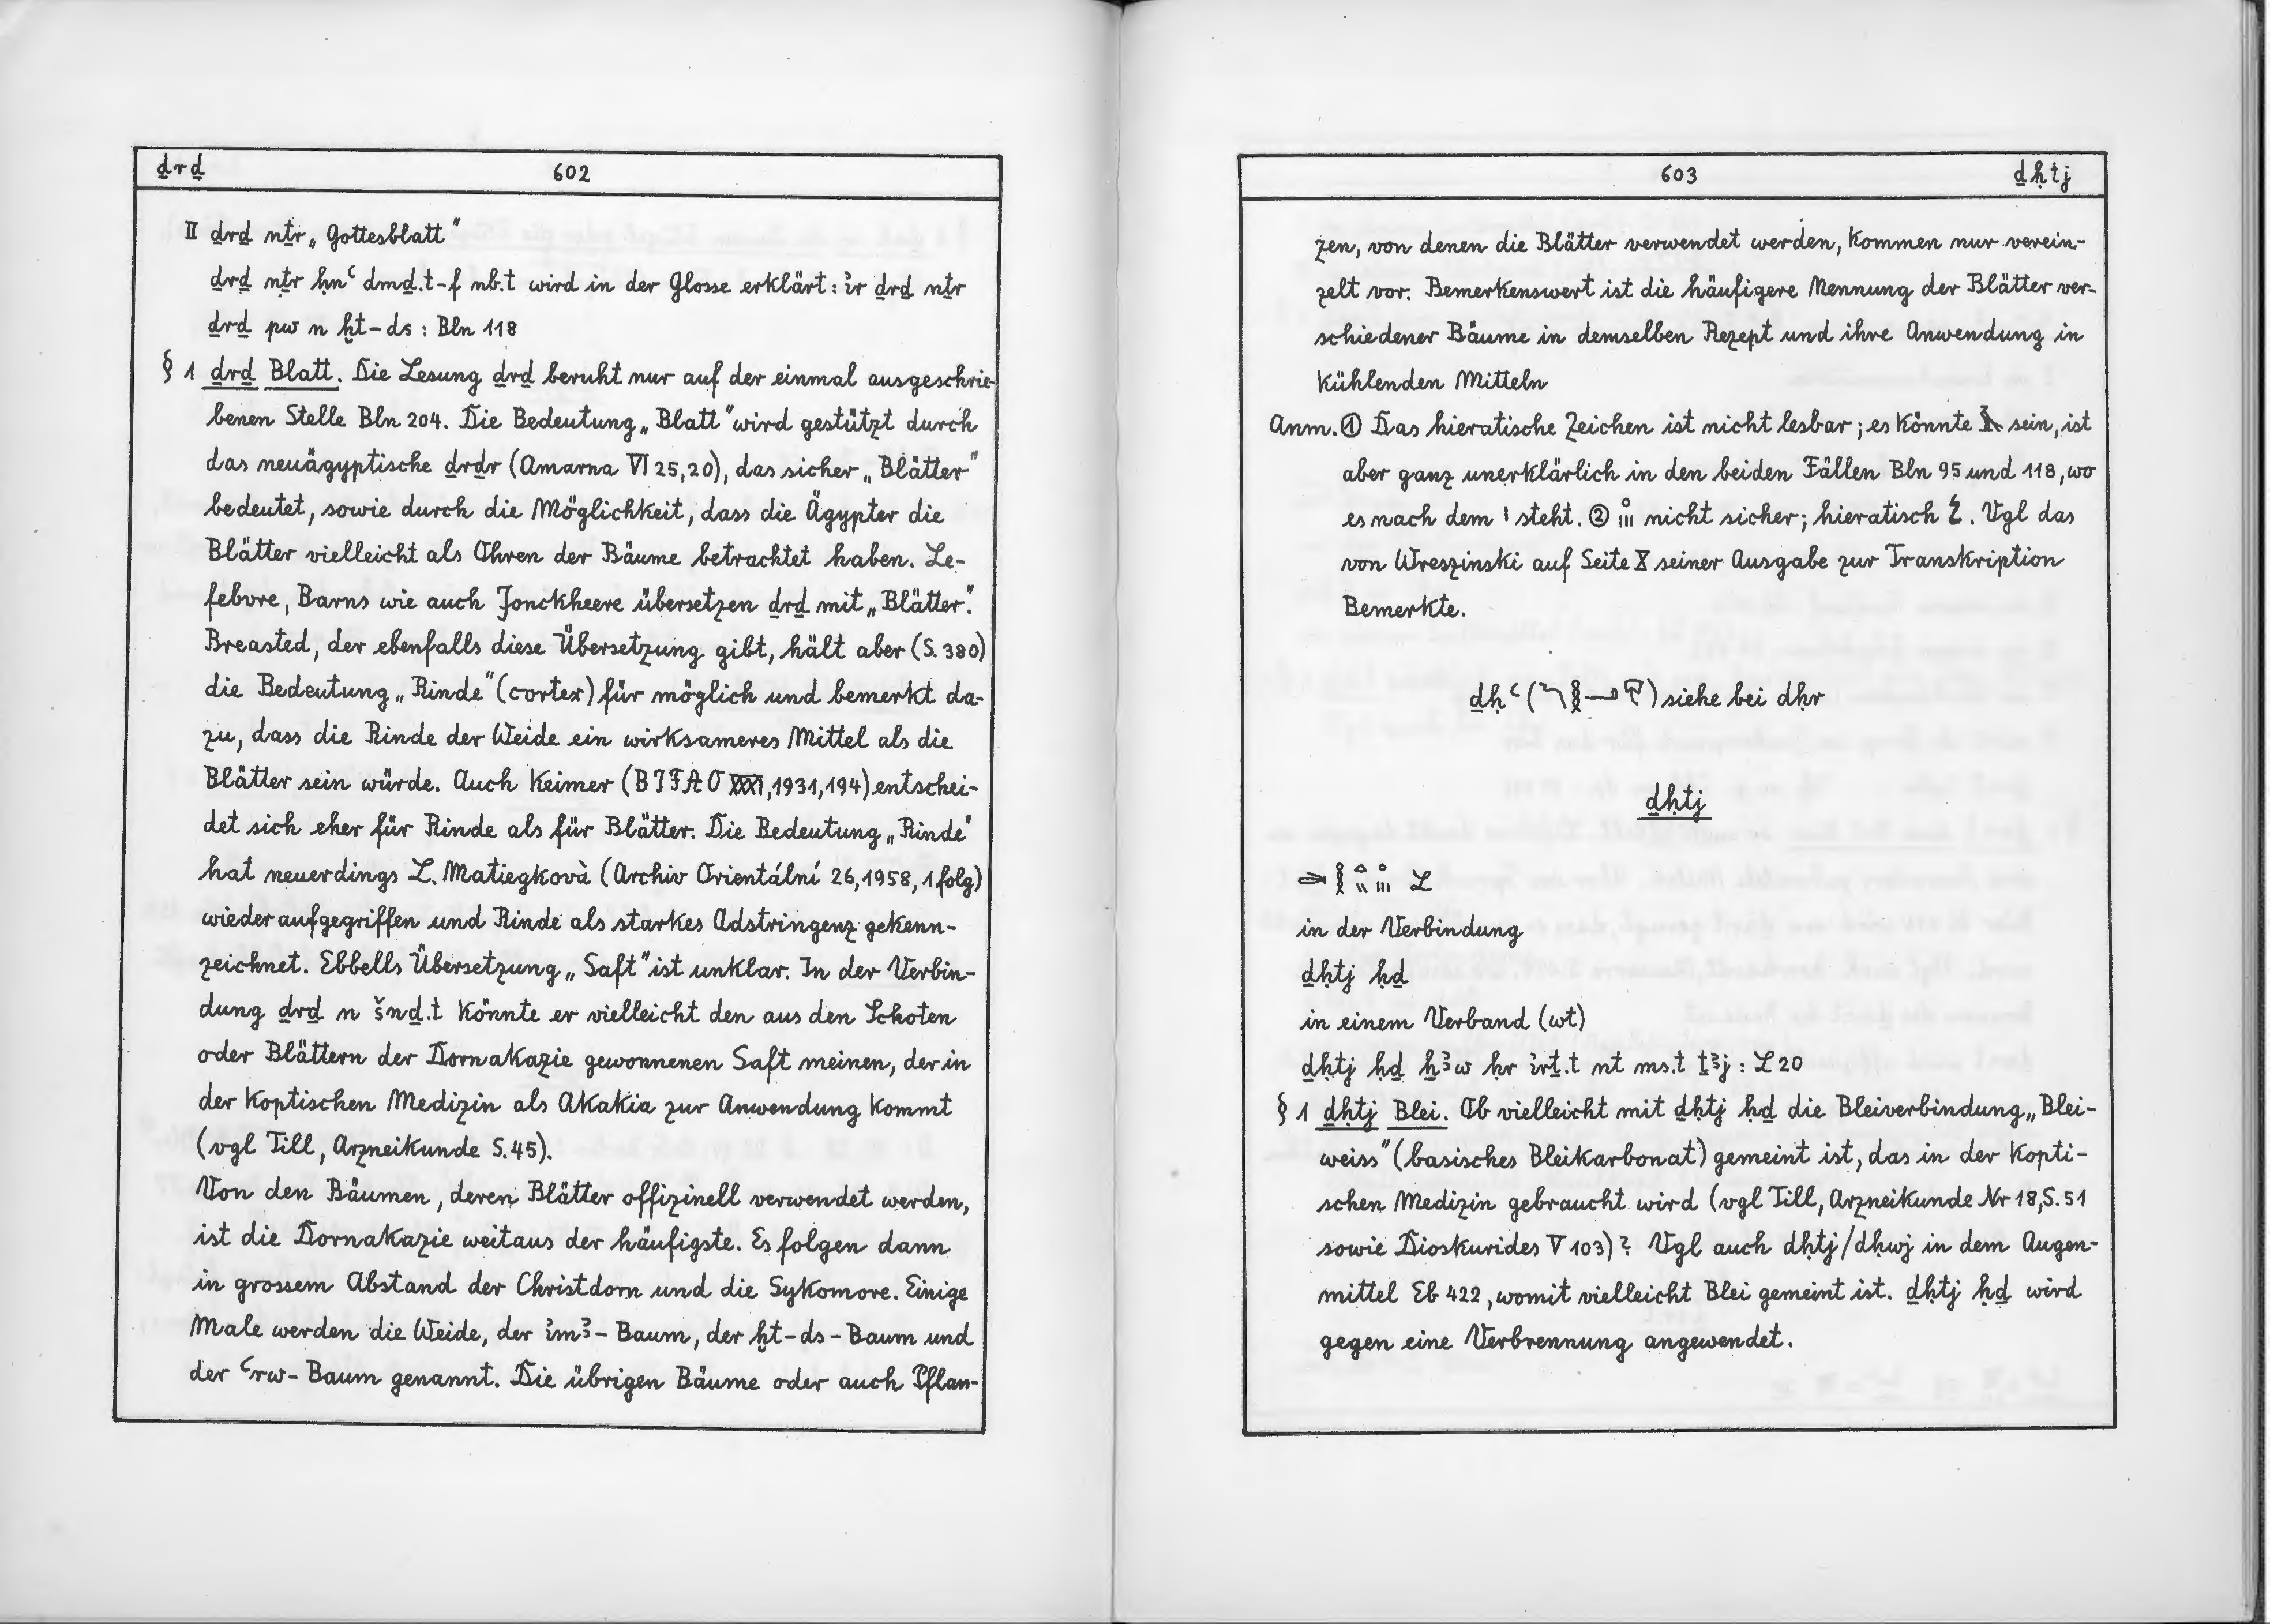 ḏrḏ 602
II ḏrḏ nṯr „Gottesblatt"
ḏrḏ nṯr ḥnꜥ dmḏ.t-f nb.t wird in der Glosse erklärt: ꞽr ḏrḏ nṯr
ḏrḏ pw n ḫt-ds : Bln 118
§ 1 ḏrḏ Blatt. Die Lesung ḏrḏ beruht nur auf der einmal ausgeschrie-
benen Stelle Bln 204. Die Bedeutung „Blatt" wird gestützt durch
das neuägyptische ḏrḏr (Amarna VI 25,20), das sicher „Blätter"
bedeutet, sowie durch die Möglichkeit, dass die Ägypter die
Blätter vielleicht als Ohren der Bäume betrachtet haben. Le-
febvre, Barns wie auch Jonckheere übersetzen ḏrḏ mit „Blätter".
Breasted, der ebenfalls diese Übersetzung gibt, hält aber (S. 380)
die Bedeutung „Rinde" (cortex) für möglich und bemerkt da-
zu, dass die Rinde der Weide ein wirksameres Mittel als die
Blätter sein würde. Auch Keimer (BIFAO XXXI, 1931, 194) entschei-
det sich eher für Rinde als für Blätter. Die Bedeutung „Rinde"
hat neuerdings L. Matiegkovà (Archiv Orientální 26, 1958, 1 folg)
wieder aufgegriffen und Rinde als starkes Adstringenz gekenn-
zeichnet. Ebbells Übersetzung „Saft" ist unklar. In der Verbin-
dung ḏrḏ n šnḏ.t könnte er vielleicht den aus den Schoten
oder Blättern der Dornakazie gewonnenen Saft meinen, der in
der koptischen Medizin als Akakia zur Anwendung kommt
(vgl Till, Arzneikunde S. 45).
Von den Bäumen, deren Blätter offizinell verwendet werden,
ist die Dornakazie weitaus der häufigste. Es folgen dann
in grossem Abstand der Christdorn und die Sykomore. Einige
Male werden die Weide, der ꞽmꜣ-Baum, der ḫt-ds-Baum und
der ꜥrw-Baum genannt. Die übrigen Bäume oder auch Pflan-
603 ḏḥtj
zen, von denen die Blätter verwendet werden, kommen nur verein-
zelt vor. Bemerkenswert ist die häufigere Nennung der Blätter ver-
schiedener Bäume in demselben Rezept und ihre Anwendung in
kühlenden Mitteln
Anm. ① Das hieratische Zeichen ist nicht lesbar; es könnte sein, ist
aber ganz unerklärlich in den beiden Fällen Bln 95 und 118, wo
es nach dem 𓏤 steht. ② nicht sicher; hieratisch . Vgl das
von Wreszinski auf Seite X seiner Ausgabe zur Transkription
Bemerkte.
ḏḥꜥ ( ) siehe bei dḥr
ḏḥtj
L
in der Verbindung
ḏḥtj ḥḏ
in einem Verband (wt)
ḏḥtj ḥḏ ẖꜣw ḥr ꞽrṯ.t nt ms.t ṯꜣj : L 20
§ 1 ḏḥtj Blei. Ob vielleicht mit ḏḥtj ḥḏ die Bleiverbindung „Blei-
weiss" (basisches Bleikarbonat) gemeint ist, das in der kopti-
schen Medizin gebraucht wird (vgl Till, Arzneikunde Nr 18, S. 51
sowie Dioskurides V 103)? Vgl auch dḥtj/dḥwj in dem Augen-
mittel Eb 422, womit vielleicht Blei gemeint ist. ḏḥtj ḥḏ wird
gegen eine Verbrennung angewendet.